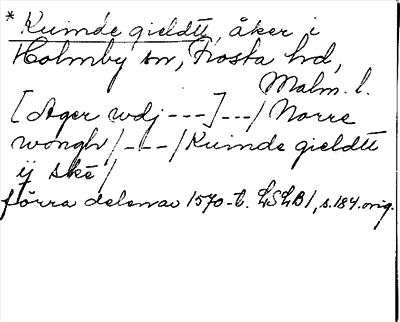 * Kuinde gieldtt, åker i
Holmby sn, Frosta hd,
Malm. l.
[Ager wdj ---] ---/ Norre
wonghr /_ _ _/ Kuinde gieldtt
ij skē /
förra delen av 1570-t. LSLB 1, s. 184. orig.